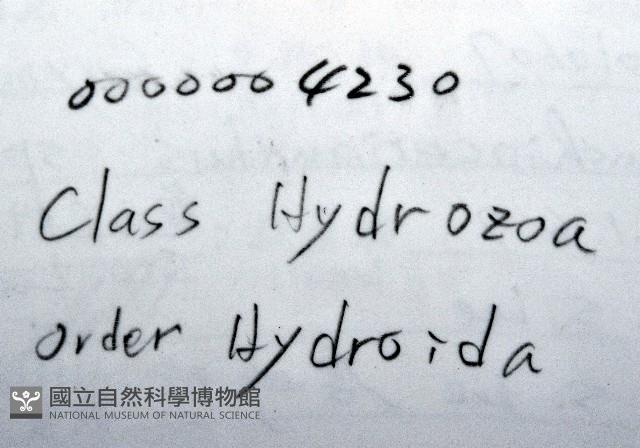 0000004230
Class Hydrozoa
order Hydroida
國立自然科學博物館
NATIONAL MUSEUM OF NATURAL SCIENCE